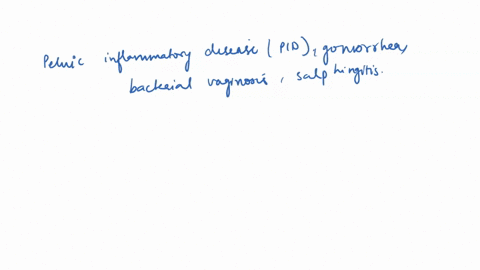 Pelvic inflammatory disease (PID), gonorrhea,
bacterial vaginosis, salphingitis.